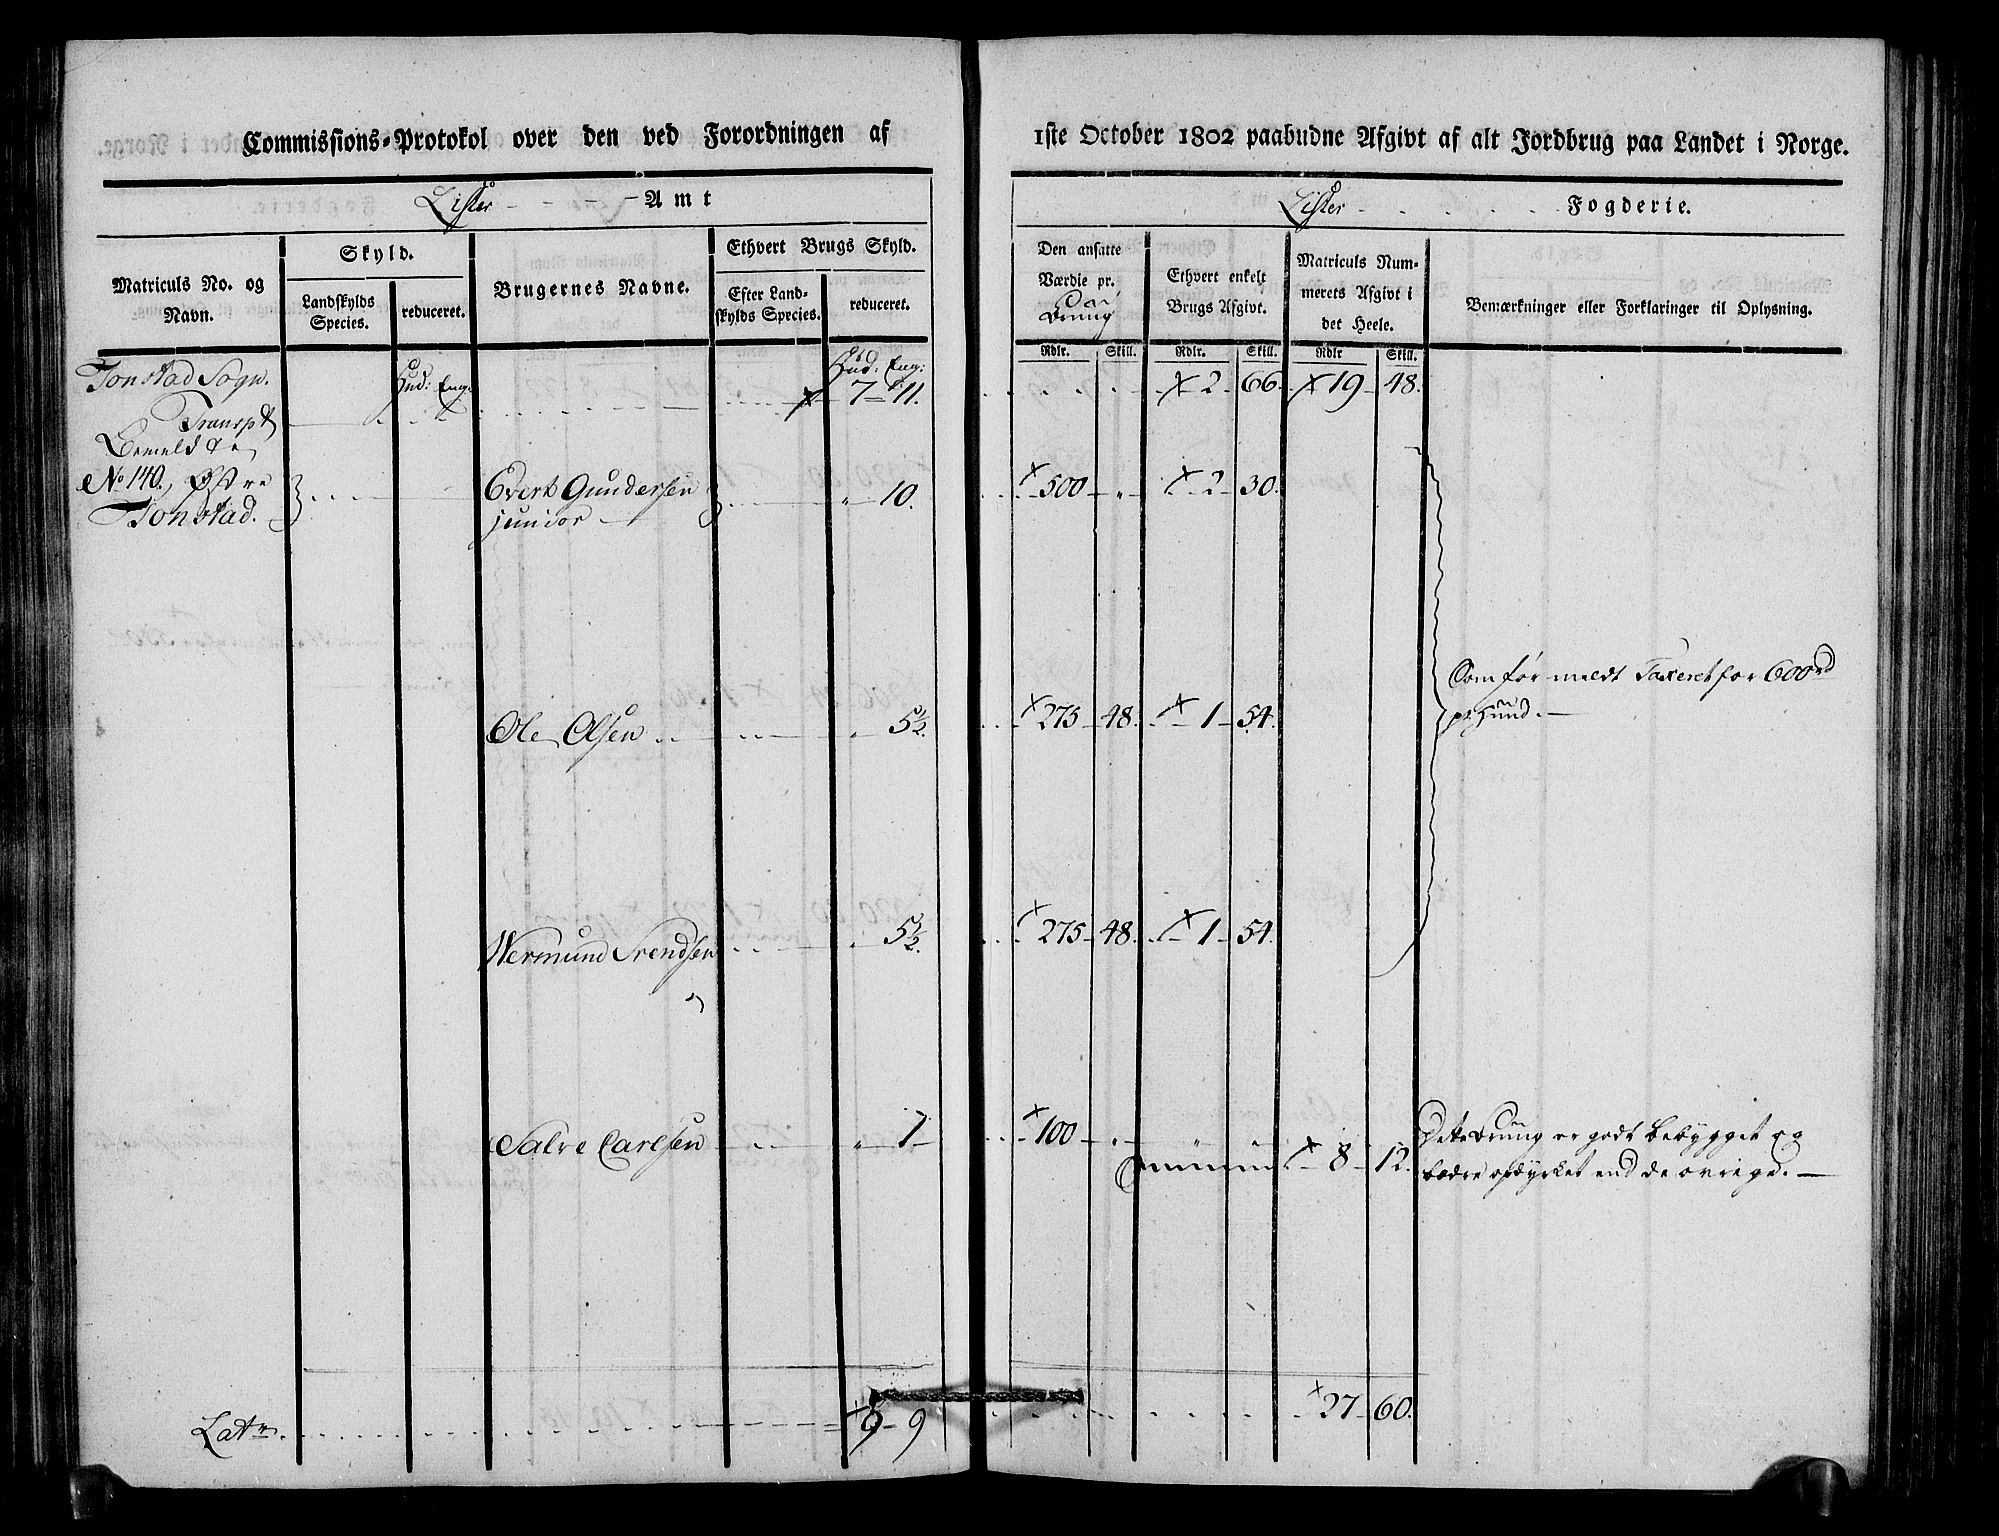 Commissions-Protokol over den ved Forordningen af
Lister - - - - Amt
Matriculs No. og Navn.
Skyld.
Landskylds Species.
reduceret.
Brugernes Navne.
Ethvert Brugs Skyld.
Efter Landskylds Species.
reduceret.
Tonstad Sogn.
Hud: Eng:
Hud: Eng:
Transpt
x 7 - 11.
No 140, Østre
Tonstad.
Evert Gundersen
junior
" 10.
Ole Olsen
" 5½.
Wermund Svendsen
" 5½.
Salve Carlsen
" 1
Latr.
9 - 9
1ste October 1802 paabudne Afgivt af alt Jordbrug paa Landet i Norge.
Lister - - - - Fogderie.
Den ansatte Værdie pr.
Brug
Ethvert enkelt Brugs Afgivt.
Matriculs Nummerets Afgivt i det Heele.
Bemærkninger eller Forklaringer til Oplysning.
Rdlr. Skill. Rdlr. Skill. Rdlr Skill.
x 2 66. x 19 48.
x 500 - " - x 2 30.
Som før meldt Taxeret for 600 rd
pr Hund. -
x 275 - 48. x 1 - 54.
x 275 - 48. x 1 - 54.
x 100 - " - " "
x 8 - 12.
Dette Brug er godt bebygget og
bædre opdyrket end de øvrige. -
x 27 - 60.